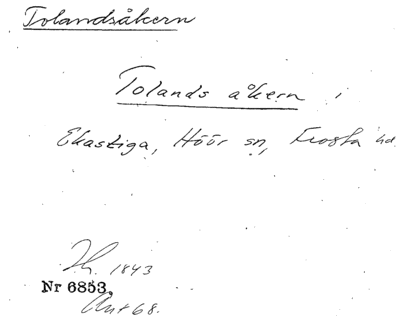 Tolandsåkern
Tolands åkern i
Ekastiga, Höör sn, Frosta hd
1843
Nr 6853,
Ant 68.